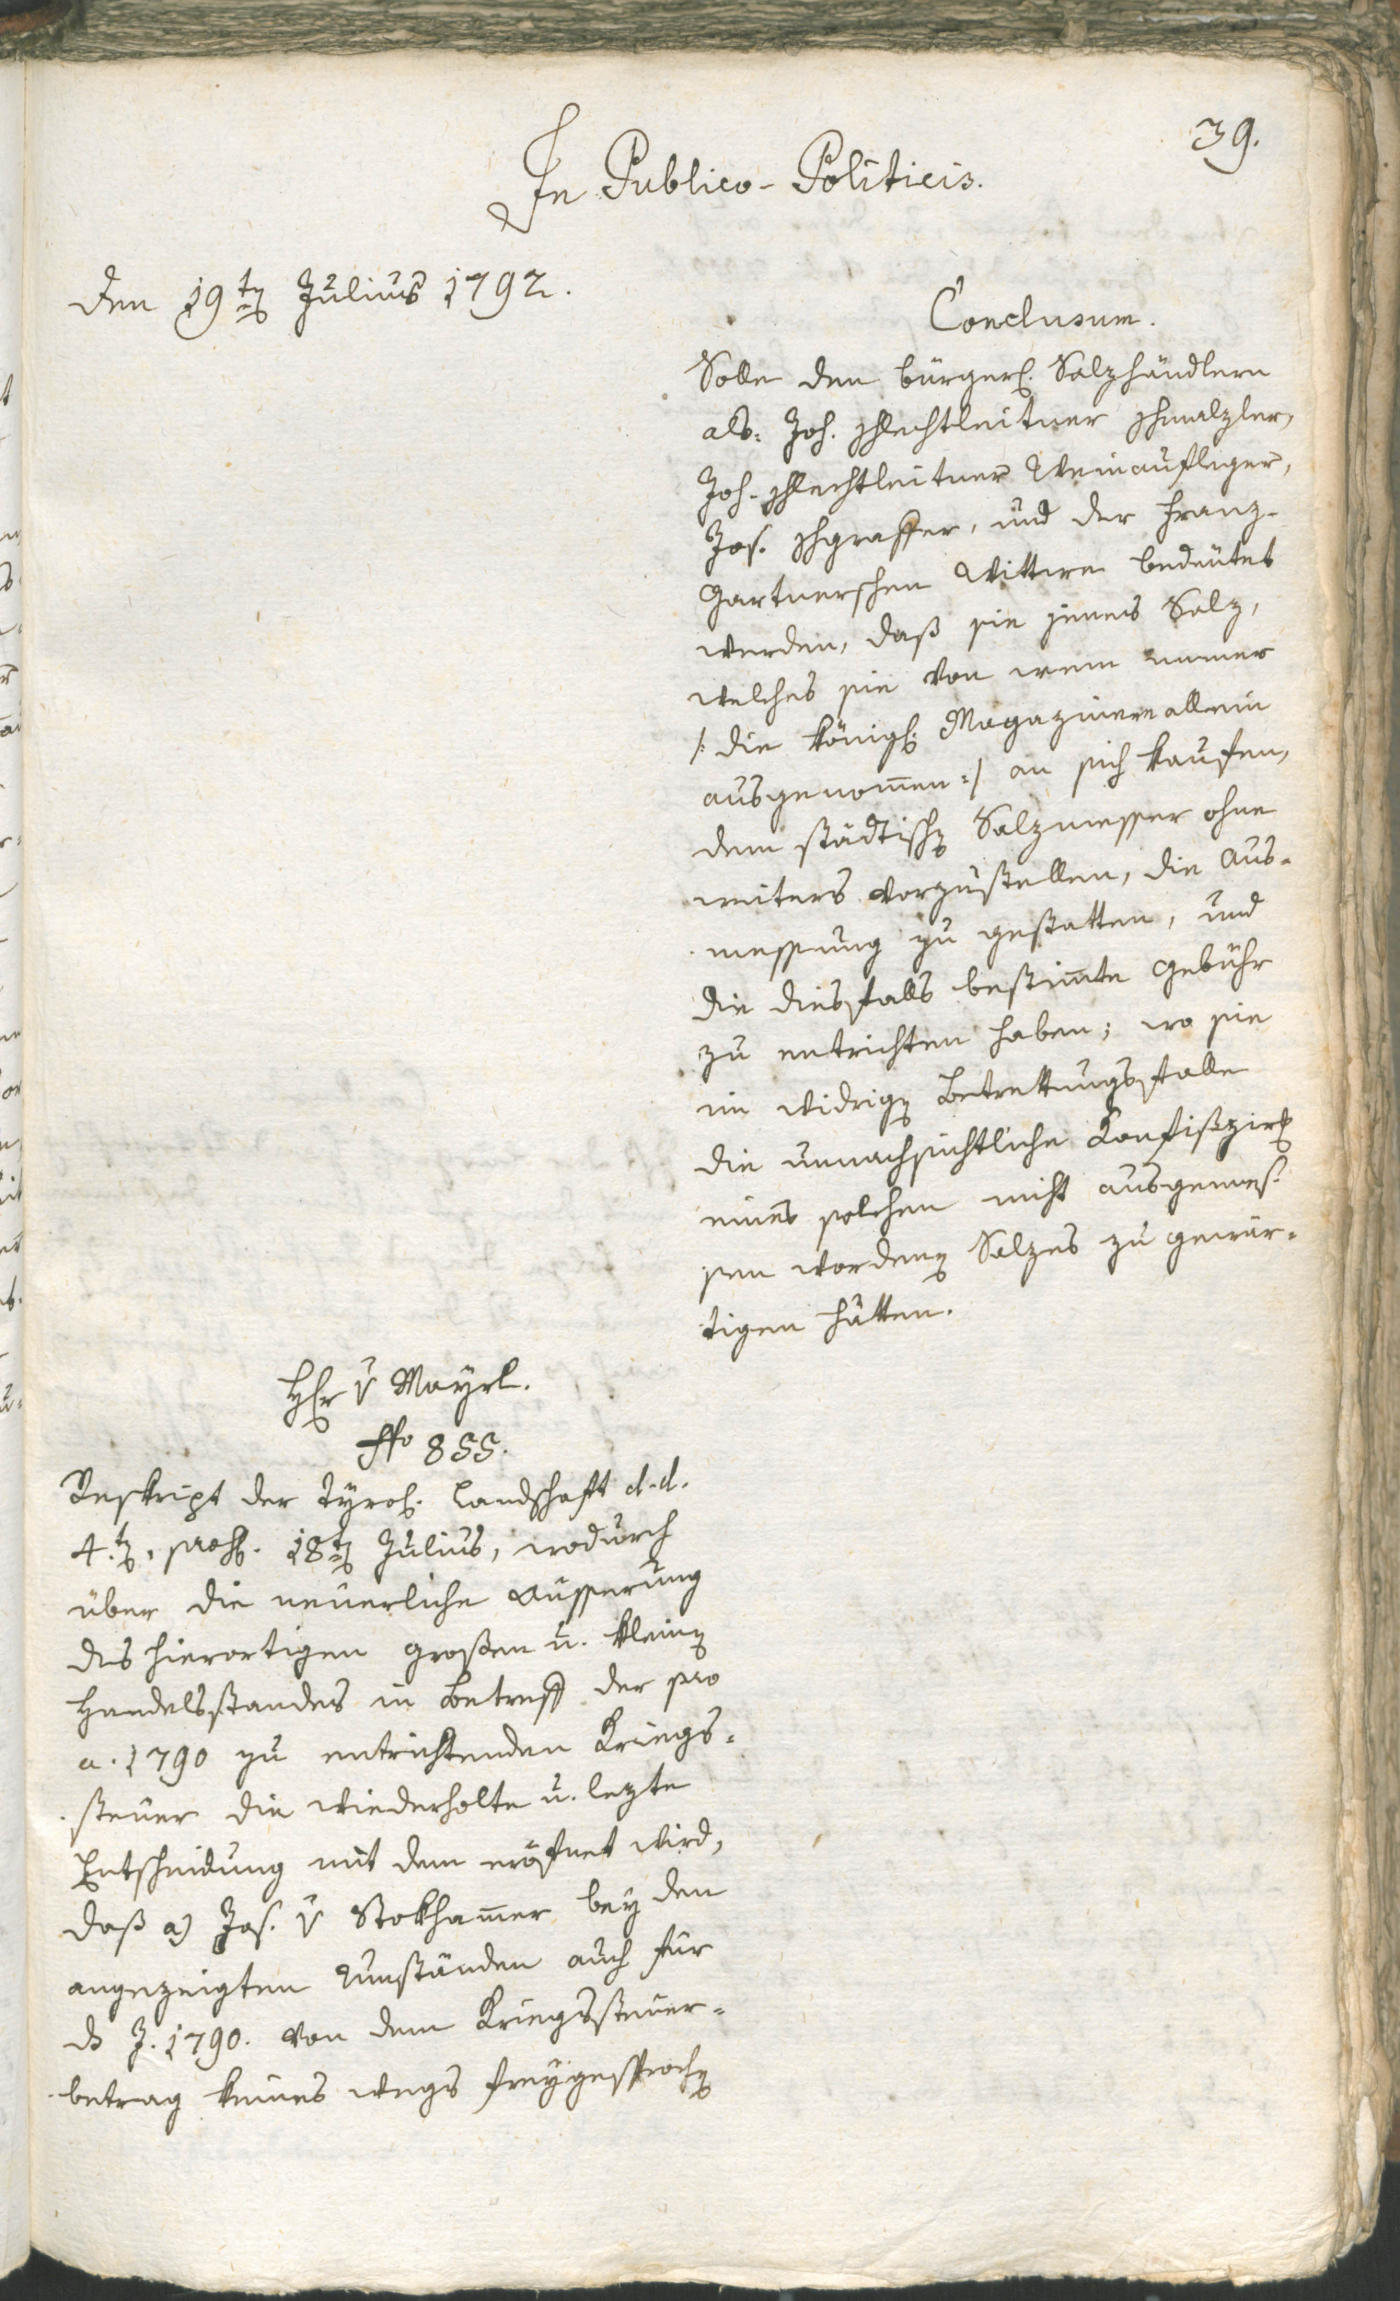 39.
In Publico-Politicis.
den 19ten Julius 1792.
Conclusum.
Solle den bürgerl. Salzhändlern
als: Joh. Schlechtleitner Schmalzler,
Joh. Schlechtleitner Weinaufleger,
Jos. Schgraffer, und der Franz-
Gartnerschen Wittwe bedeutet
werden, daß sie jenes Salz,
welches sie von wem immer
/: die königl. Magazinere allein
ausgenom̄en :/ an sich kaufen,
dem städtischen Salzmesser ohne
weiters vorzustellen, die Aus-
messung zu gestatten, und
die diesfalls bestim̄te Gebühr
zu entrichten haben; wo sie
im widrigen Betrettungsfalle
die unnachsichtliche Konfiszir
eines solchen nicht ausgemes-
sen wordenen Salzes zu gewär-
tigen hätten.
Hr v Mayrl.
No 855.
Reskript der Tyrol. Landschaft d.d.
4.ten, praes. 18ten Julius, wodurch
über die neuerliche Äusserung
des hierortigen großen u. kleinen
Handelsstandes in Betreff der pro
a. 1790 zu entrichtenden Kriegs-
steuer die wiederholte u. lezte
Entscheidung mit dem eröfnet wird,
daß a) Jos. v Stokham̄er bey den
angezeigten Umständen auch für
ds J. 1790. von dem Kriegssteuer-
betrag keines wegs freygesprochen